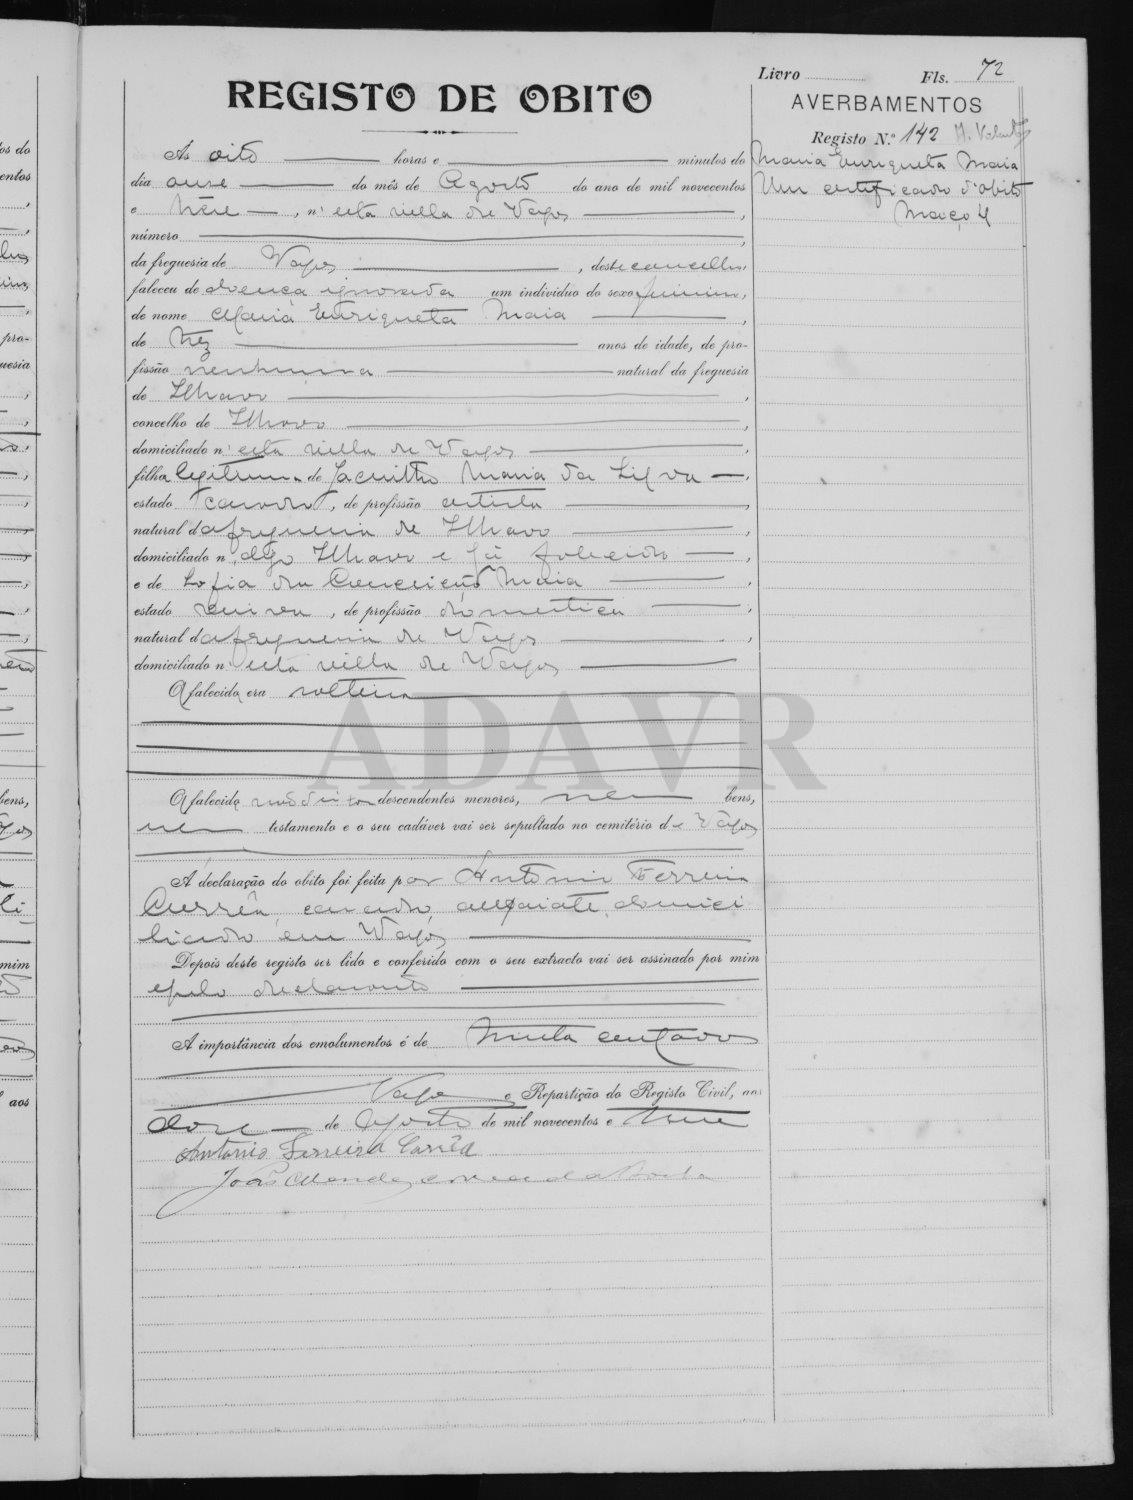 Livro Fls. 72
REGISTO DE OBITO
AVERBAMENTOS
Registo N.º 142
Maria Enriqueta Maia
Um certificado d'obito
Maço 4
As oito horas e minutos do
dia onse do mês de Agosto do ano de mil novecentos
e trese, n'esta villa de Vagos,
número
da freguesia de Vagos, deste concelho,
faleceu de doença ignorada um individuo do sexo feminino,
de nome Maria Enriqueta Maia,
de trez anos de idade, de pro-
fissão nenhuma natural da freguesia
de Ilhavo,
concelho de Ilhavo,
domiciliado n'esta villa de Vagos,
filha legitima de Jacintho Maria da Silva,
estado casado, de profissão artista,
natural da freguesia de Ilhavo,
domiciliado n Ilhavo e já falecido,
e de Sofia da Conceição Maia,
estado viuva, de profissão domestica,
natural da freguesia de Vagos,
domiciliado n'esta villa de Vagos
A falecida era solteira
ADAVR
A falecida não deixou descendentes menores, nem bens,
nem testamento e o seu cadáver vai ser sepultado no cemitério de Vagos
A declaração do obito foi feita por Antonio Ferreira
Corrêa, casado, alfaiate, domici
liado em Vagos
Depois deste registo ser lido e conferido com o seu extracto vai ser assinado por mim
e pelo declarante
A importância dos emolumentos é de trinta centavos
Vagos e Repartição do Registo Civil, aos
doze de Agosto de mil novecentos e trese
Antonio Ferreira Corrêa
João Mendes Correa da Rocha